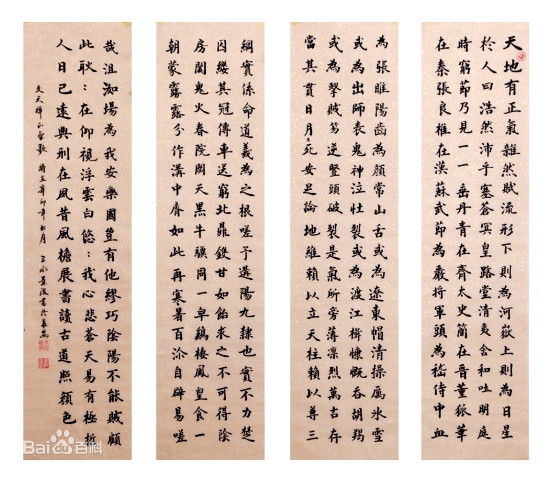 天地有正氣雜然賦流形下則為河嶽上則為日星
於人曰浩然沛乎塞蒼冥皇路當清夷含和吐明庭
時窮節乃見一一垂丹青在齊太史簡在晉董狐筆
在秦張良椎在漢蘇武節為嚴將軍頭為嵇侍中血
為張睢陽齒為顏常山舌或為遼東帽清操厲冰雪
或為出師表鬼神泣壯裂或為渡江楫慷慨吞胡羯
或為擊賊笏逆豎頭破裂是氣所旁薄凜烈萬古存
當其貫日月生死安足論地維賴以立天柱賴以尊三
綱實係命道義為之根嗟予遘陽九隸也實不力楚
囚纓其冠傳車送窮北鼎鑊甘如飴求之不可得陰
房闃鬼火春院閟天黑牛驥同一皁鷄棲鳳皇食一
朝蒙霧露分作溝中瘠如此再寒暑百沴自辟易嗟
哉沮洳場為我安樂國豈有他繆巧陰陽不能賊顧
此耿:在仰視浮雲白悠:我心悲蒼天曷有極哲
人日已遠典刑在夙昔風檐展書讀古道照顏色
文天祥正氣歌
Baidu百科